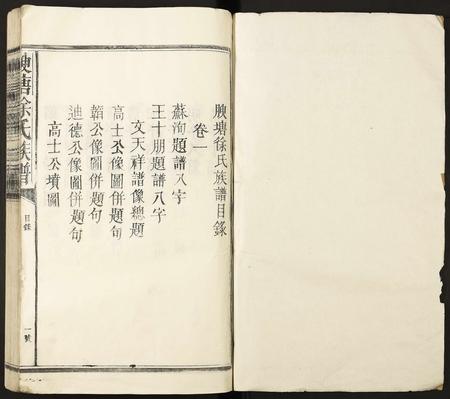 腴塘徐氏族譜目錄
卷一
蘇洵題譜八字
王十朋題譜八字
文天祥譜像總題
高士公像圖併題句
韜公像圖併題句
迪德公像圖併題句
高士公墳圖
腴塘徐氏族譜
目錄
一號